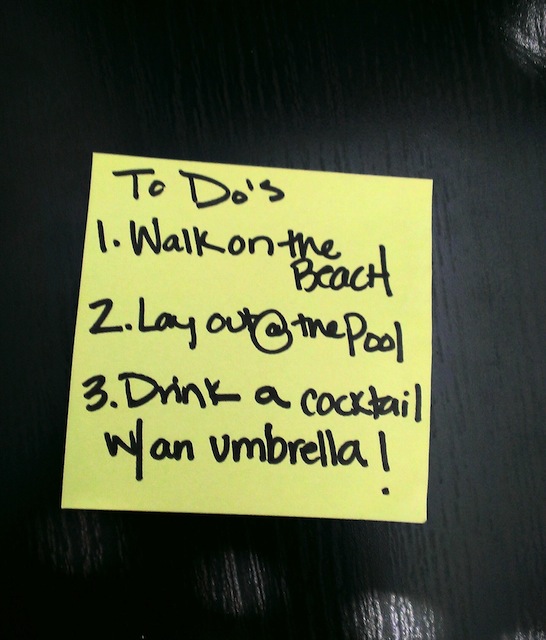 To Do's
1. Walk on the
Beach
2. Lay out @ the Pool
3. Drink a cocktail
w/ an umbrella!